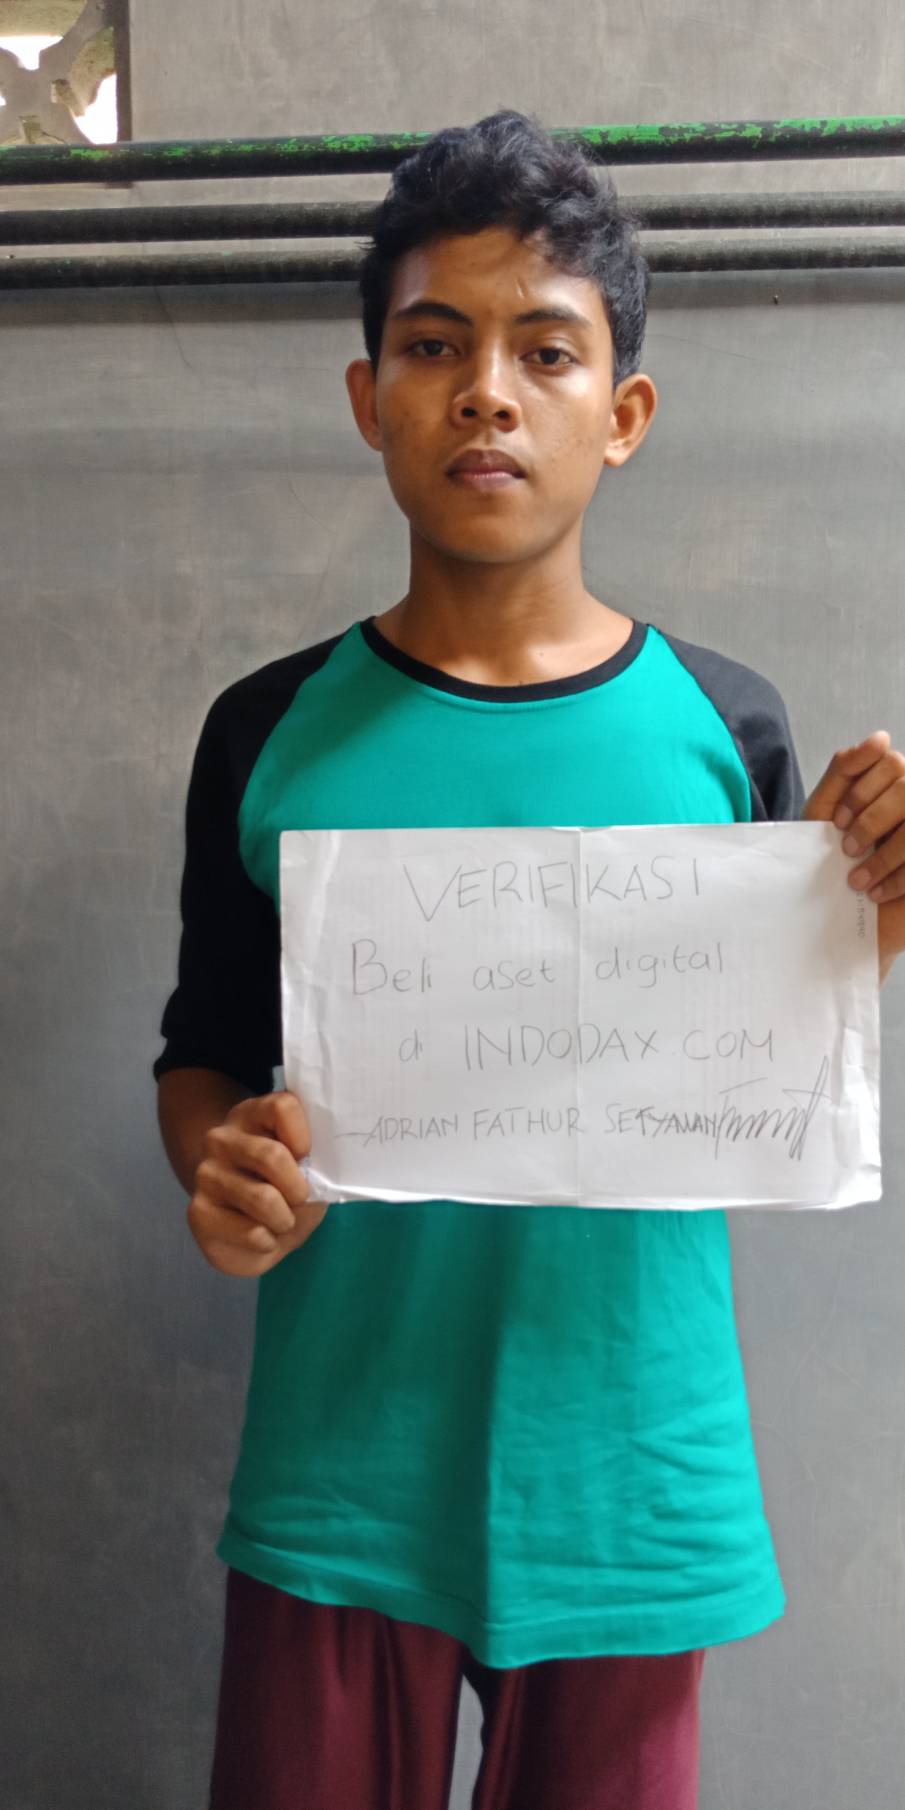 VERIFIKASI
Beli aset digital
di INDODAX.COM
ADRIAN FATHUR SETYAWAN